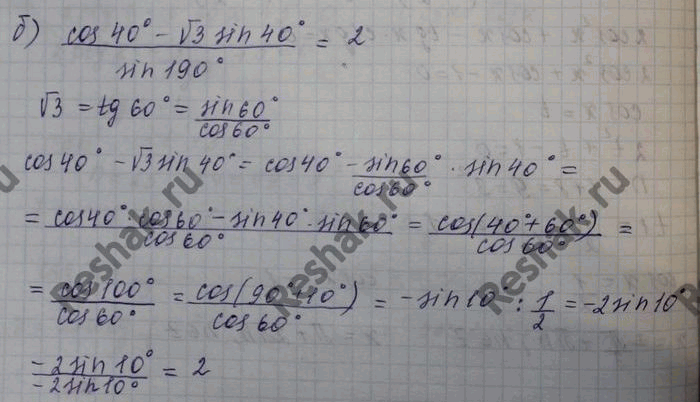 б) (cos 40° - √3 sin 40°) / sin 190° = 2
√3 = tg 60° = sin 60° / cos 60°
cos 40° - √3 sin 40° = cos 40° - sin 60° / cos 60° · sin 40° =
= (cos 40° · cos 60° - sin 40° · sin 60°) / cos 60° = cos(40° + 60°) / cos 60° =
= cos 100° / cos 60° = cos(90° + 10°) / cos 60° = - sin 10° : 1/2 = -2 sin 10°
-2 sin 10° / -2 sin 10° = 2
Reshak.ru
Reshak.ru
Reshak.ru
Reshak.ru